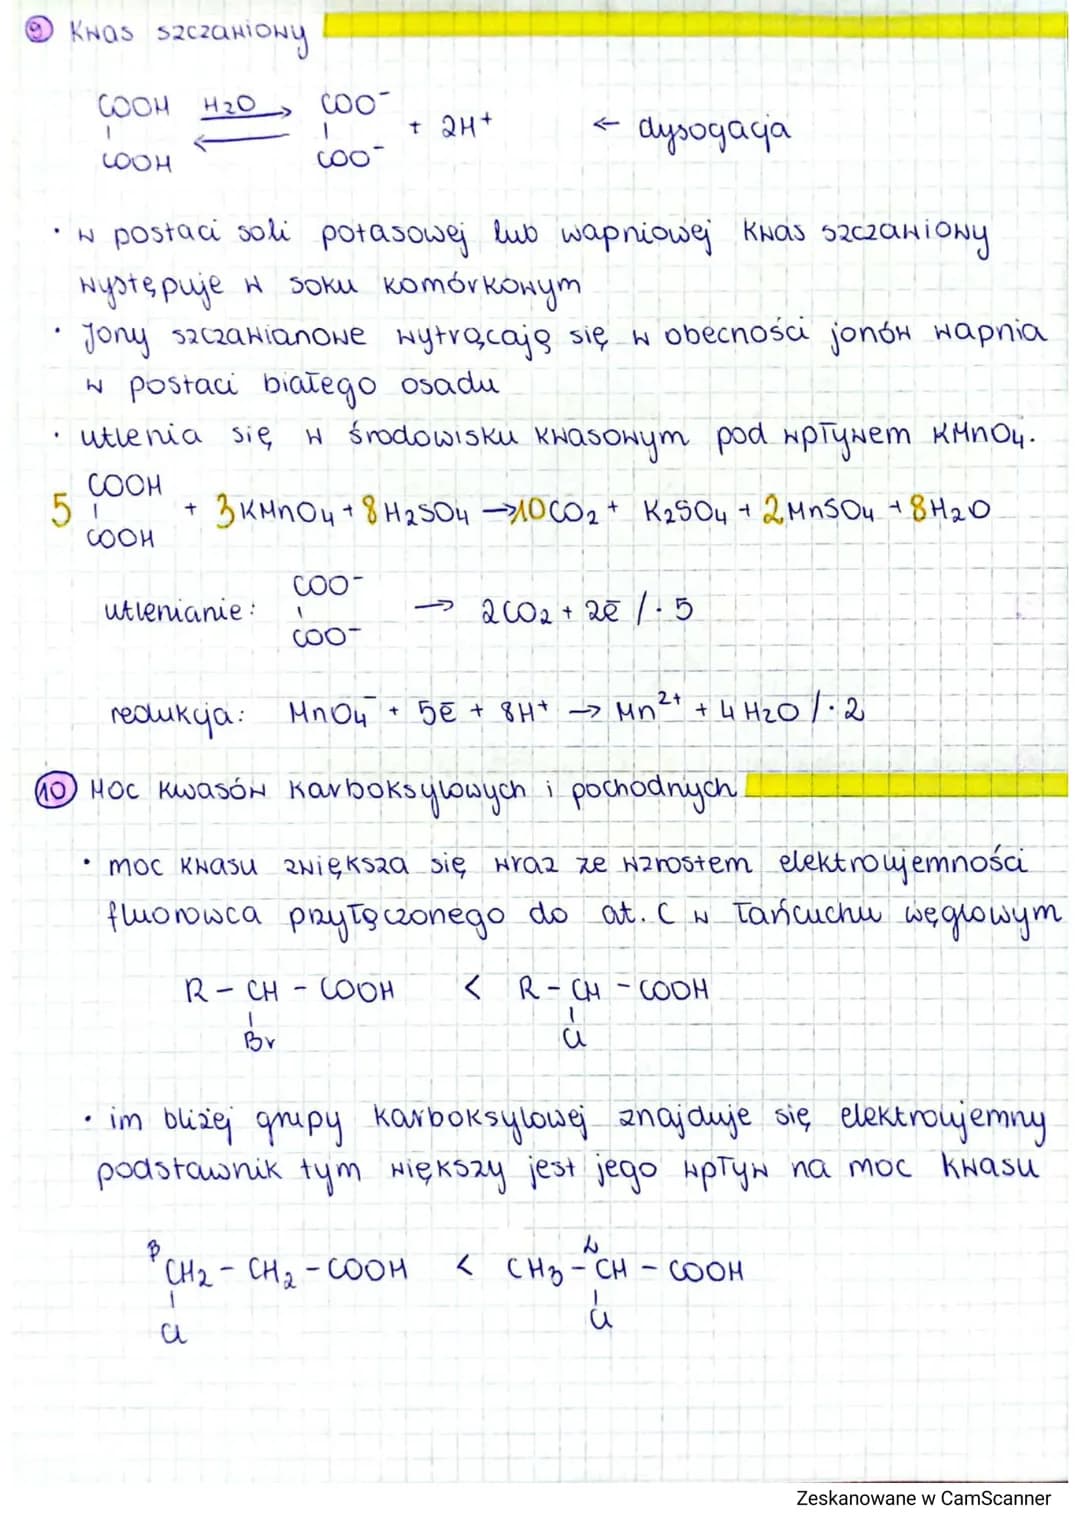 9 Kwas szczawiowy
COOH H2O COO⁻
| ⇌ | + 2H⁺ ← dysocjacja
COOH COO⁻
• w postaci soli potasowej lub wapniowej kwas szczawiowy
występuje w soku komórkowym
• Jony szczawianowe wytrącają się w obecności jonów wapnia
w postaci białego osadu
• utlenia się w środowisku kwasowym pod wpływem KMnO4.
COOH
5 | + 3KMnO4 + 8H2SO4 → 10CO2 + K2SO4 + 2MnSO4 + 8H2O
COOH
COO⁻
utlenianie: | → 2CO2 + 2ē /· 5
COO⁻
redukcja: MnO4⁻ + 5ē + 8H⁺ → Mn²⁺ + 4H2O /· 2
10 Moc kwasów karboksylowych i pochodnych
• moc kwasu zwiększa się wraz ze wzrostem elektroujemności
fluorowca przyłączonego do at. C w łańcuchu węglowym
R – CH – COOH < R – CH – COOH
| |
Br Cl
• im bliżej grupy karboksylowej znajduje się elektroujemny
podstawnik tym większy jest jego wpływ na moc kwasu
β α
CH2 – CH2 – COOH < CH3 – CH – COOH
| |
Cl Cl
Zeskanowane w CamScanner